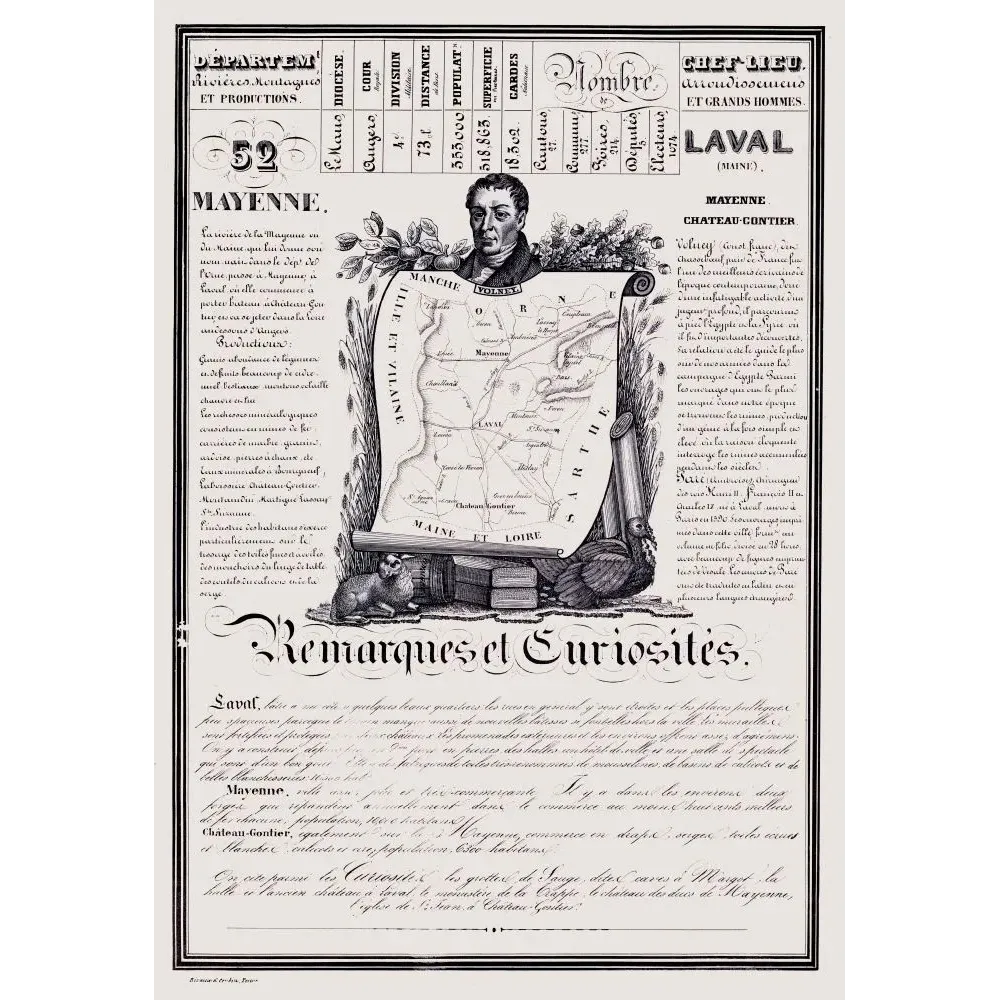 DÉPARTEM.t
Rivières, Montagnes
ET PRODUCTIONS.
DIOCÈSE.
Le Mans
COUR
Royale
Angers
DIVISION
Militaire
4e
DISTANCE
de Paris
73 l
POPULAT.n
353000
SUPERFICIE
en Hectares
518,863
GARDES
Nationaux
18,302
Nombre
de
Cantons
27
Communes
277
Foires
214
Députés
5
Electeurs
1074
CHEF LIEU,
Arrondissemens
ET GRANDS HOMMES.
52
MAYENNE.
La rivière de la Mayenne ou
du Maine qui lui donne son
nom nait dans le dép.t de
l'Orne passe à Mayenne, à
Laval, où elle commence à
porter bateau, à Château-Gon
tier, et va se jeter dans la Loire
au dessous d'Angers.
Productions:
Grains abondance de légumes
et de fruits beaucoup de cidre
miel bestiaux moutons volaille
chanvre et lin
Les richesses minéralogiques
consistent en mines de fer
carrières de marbre, granit,
ardoise, pierres à chaux, etc
Eaux minérales à Bourgneuf,
Château-Gontier,
Martigné Lassay
Ste Suzanne.
L'industrie des habitans s'exerce
particulièrement sur le
tissage des toiles fines et
des mouchoirs du linge de table
des coutils du calicot et de la
serge.
VOLNEY.
MANCHE
ORNE
ILLE ET VILAINE
SARTHE
MAINE ET LOIRE
Landivi
Gorron
Ambrières
Couptrain
Ernée
Mayenne
Chailland
Evron
LAVAL
Montsurs
Argentré
Meslay
Cossé le Vivien
Craon
Château Gontier
Bierné
LAVAL
(MAINE).
MAYENNE.
CHATEAU-GONTIER
Volney (Const. franc.) de
Chasseboeuf pair de France fut
l'un des meilleurs écrivains de
l'époque contemporaine, doué
d'une infatigable activité d'un
jugem.t profond, il parcourut
à pied l'Egypte et la Syrie où
il fit d'importantes découvertes,
sa relation a été le guide le plus
sur de nos armées dans la
campagne d'Egypte Parmi
les ouvrages qui ont le plus
marqué dans notre époque
se trouvent les ruines, production
d'un génie à la fois simple et
élevé où la raison éloquente
interroge les ruines accumulées
pendant les siècles.
Paré (Ambroise), chirurgien
des rois Henri II, François II et
Charles IX né à Laval mort à
Paris en 1590. Ses ouvrages impri
més dans cette ville form.t un
volume in folio divisé en 28 livres
avec beaucoup de figures
de Vesale Les oeuvres de Paré
ont été traduites en latin et en
plusieurs langues étrangères
Remarques et Curiosités.
Laval, bâtie a un côté quelques beaux quartiers les rues en général y sont étroites et les places publiques
peu spacieuses manque aussi de nouvelles bâtisses si fort belles hors la ville Les murailles
sont fortifiées et protégées châteaux Les promenades extérieures et les environs offrent assez d'agrémens.
On y a construit pont en pierres des halles un hôtel de ville, et une salle de spectacle
qui sont d'un bon goût des fabriques de toiles très renommées de mousselines, de basins de calicots et de
belles blanchisseries hab.
Mayenne, ville très-commerçante Il y a dans les environs deux
forges qui répandent annuellement dans le commerce au moins huit cents milliers
de fer chacune, population, habitans
Château-Gontier, également sur la Mayenne, commerce en draps, serges, toiles ecrues
et blanches calicots et cire, population, 6500 habitans
On cite parmi les Curiosités les grottes de Sauge dites caves à Margot, la
halle et l'ancien château à Laval, le monastère de la Trappe, le château des ducs de Mayenne,
l'église de St Jean à Château-Gontier